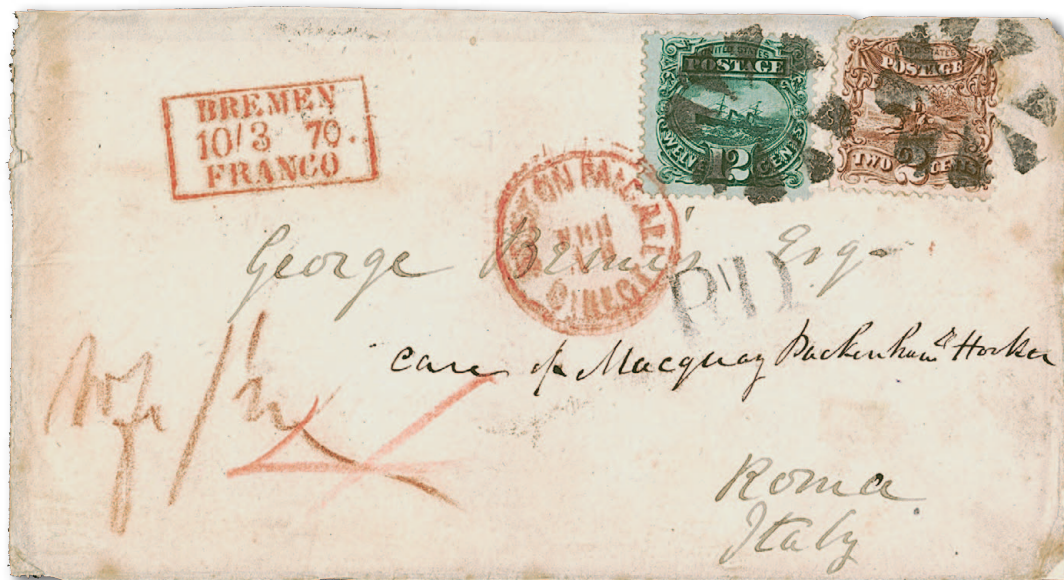 BREMEN
10/3 70.
FRANCO
UNITED STATES
POSTAGE
12
CENTS
UNITED STATES
POSTAGE
TWO 2 CENTS
BOSTON PAID ALL
DIRECT
P.D
George Bemis Esq
care of Macquay Packenham & Hooker
Roma
Italy